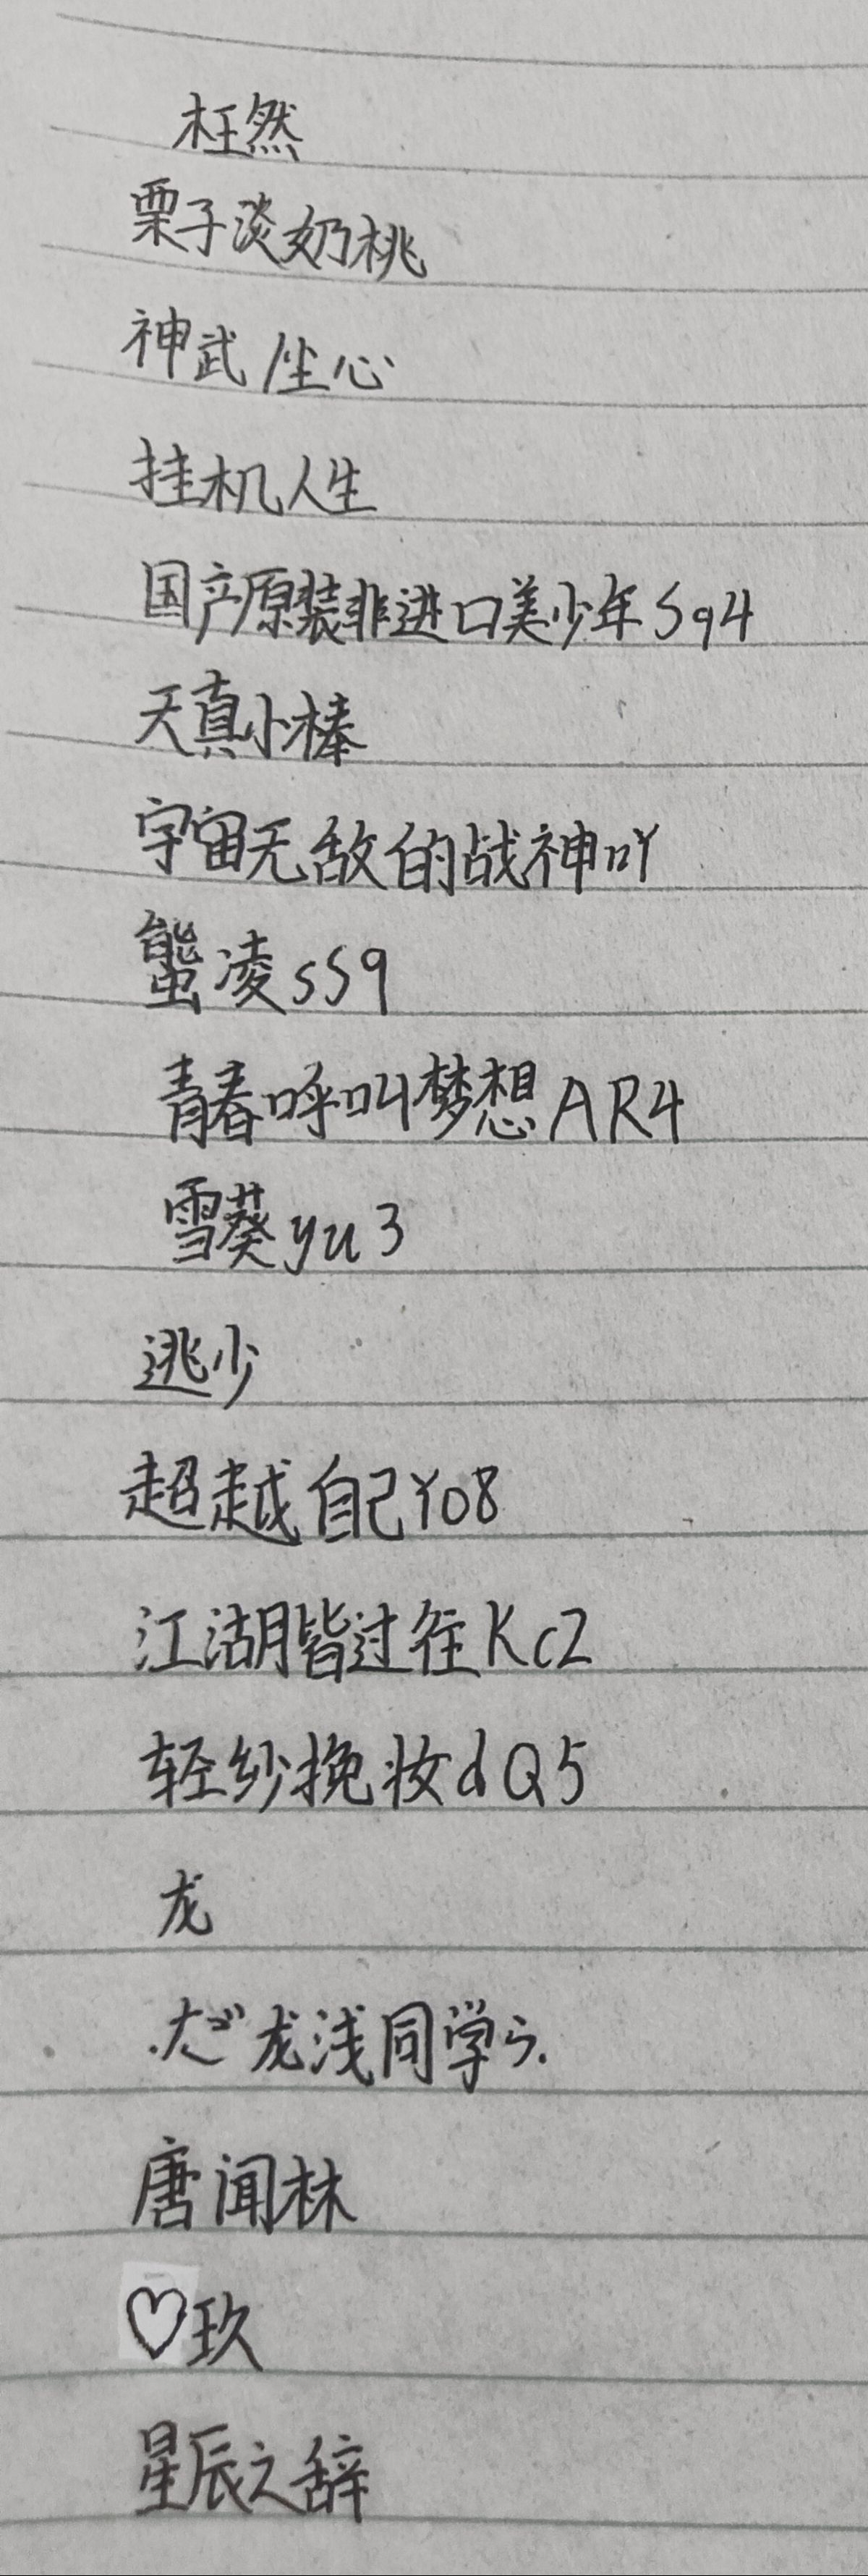 枉然
栗子淡奶桃
神武/尘心
挂机人生
国产原装非进口美少年Sq4
天真小棒
宇宙无敌的战神吖
凌sS9
青春呼叫梦想AR4
雪葵yu3
逃少
超越自己Yo8
江湖皆过往Kc2
轻纱挽妆dQ5
龙
龙浅同学ら.
唐闻林
♡玖
星辰之辞